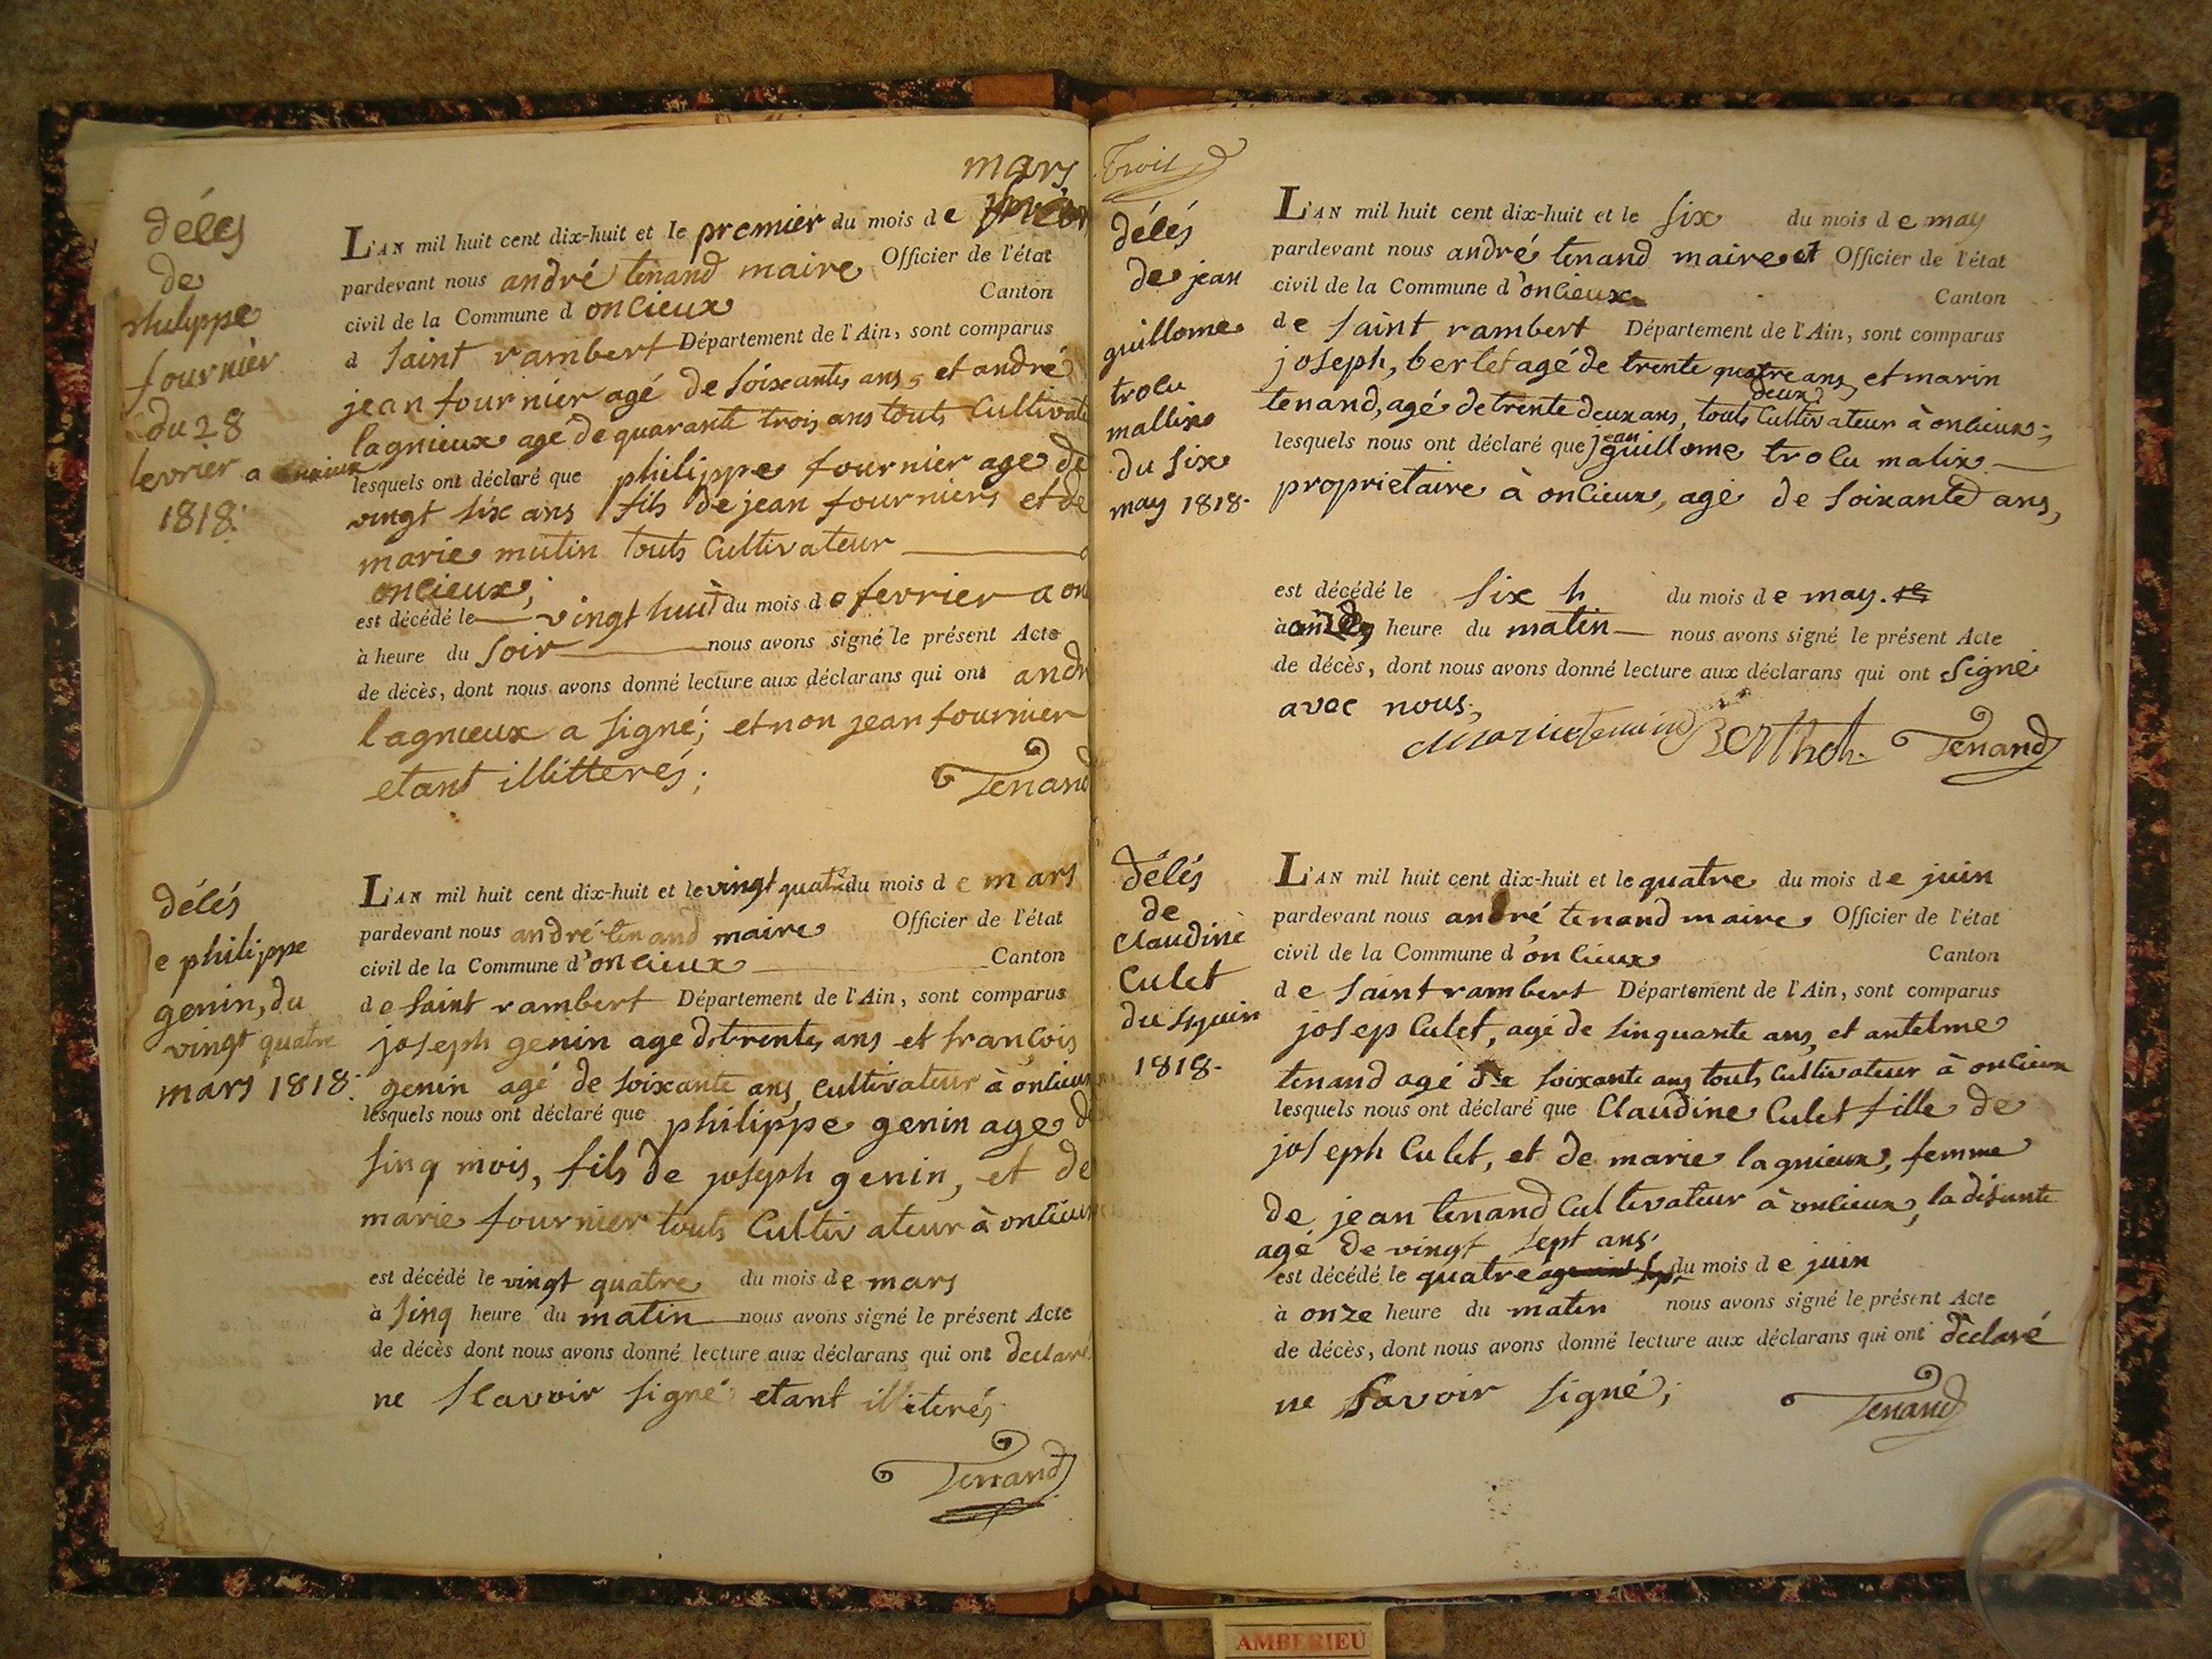 mars
décès
de
philippe
fournier
du 28
fevrier a oncieux
1818.
L'AN mil huit cent dix-huit et le premier du mois de
pardevant nous andré tenand maire Officier de l'état
civil de la Commune d oncieux Canton
d saint rambert Département de l'Ain, sont comparus
jean fournier agé de soixante ans, et andré
lagnieux agé de quarante trois ans touts Cultivate
lesquels ont déclaré que philippe fournier age de
vingt six ans fils de jean fourniers et de
marie mutin touts Cultivateur a
oncieux;
est décédé le vingt huit du mois de fevrier a on
à heure du soir nous avons signé le présent Acte
de décès, dont nous avons donné lecture aux déclarans qui ont andr
lagnieux a signé; et non jean fournier
etant illitterés;
Tenand
décés
de philippe
genin, du
vingt quatre
mars 1818.
L'AN mil huit cent dix-huit et le vingt quatre du mois de mars
pardevant nous andré tenand maire Officier de l'état
civil de la Commune d'oncieux Canton
de saint rambert Département de l'Ain, sont comparus
joseph genin age de trente ans et françois
genin agé de soixante ans, cultivateur à oncieux
lesquels nous ont déclaré que philippe genin age de
sinq mois, fils de joseph genin, et de
marie fournier touts Cultivateur à oncieux
est décédé le vingt quatre du mois de mars
à sinq heure du matin nous avons signé le présent Acte
de décès dont nous avons donné lecture aux déclarans qui ont declaré
ne scavoir signé etant illiterés
Tenand
Troit
décés
de jean
guillome
trocu
mallix
du six
may 1818.
L'AN mil huit cent dix-huit et le six du mois de may
pardevant nous andré tenand maire et Officier de l'état
civil de la Commune d'oncieux Canton
de saint rambert Département de l'Ain, sont comparus
joseph, berlet agé de trente quatre ans, et marin
deux
tenand, agé de trente deux ans, touts Cultivateur à oncieux;
lesquels nous ont déclaré que jean guillome trocu malix
proprietaire à oncieux, agé de soixante ans,
est décédé le six h du mois de may.
à heure du matin nous avons signé le présent Acte
de décès, dont nous avons donné lecture aux déclarans qui ont signé
avec nous,
Tenand
décés
de
Claudine
Culet
du 4 juin
1818.
L'AN mil huit cent dix-huit et le quatre du mois de juin
pardevant nous andré tenand maire Officier de l'état
civil de la Commune d'oncieux Canton
de saint rambert Département de l'Ain, sont comparus
josep Culet, agé de sinquante ans, et antelme
tenand agé de soixante ans touts Cultivateur à oncieux
lesquels nous ont déclaré que Claudine Culet fille de
joseph Culet, et de marie lagnieux, femme
de jean tenand Cultivateur à oncieux, la difunte
agé de vingt sept ans,
est décédé le quatre du mois de juin
à onze heure du matin nous avons signé le présent Acte
de décès, dont nous avons donné lecture aux déclarans qui ont déclaré
ne savoir signé;
Tenand
AMBERIEU